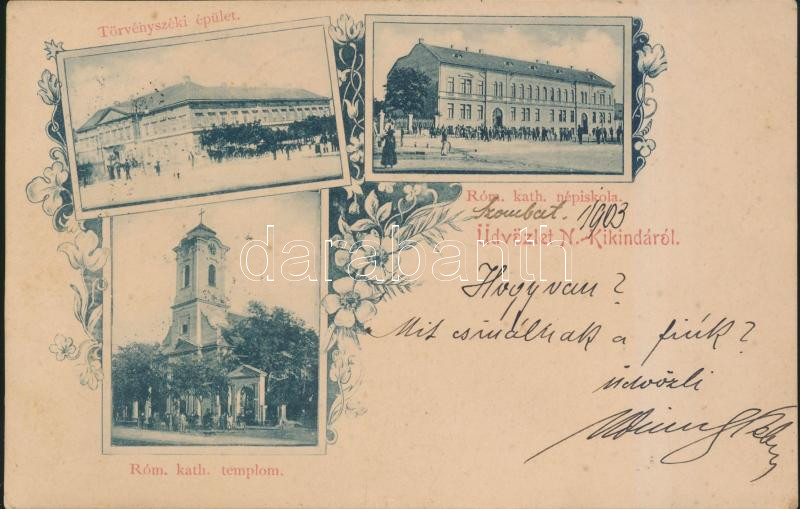 Törvényszéki épület.
Róm. kath. népiskola.
Szombat. 1903
Üdvözlet N.-Kikindáról.
darabanth
Hogy van?
Mit csinálnak a fiúk?
üdvözli
Róm. kath. templom.